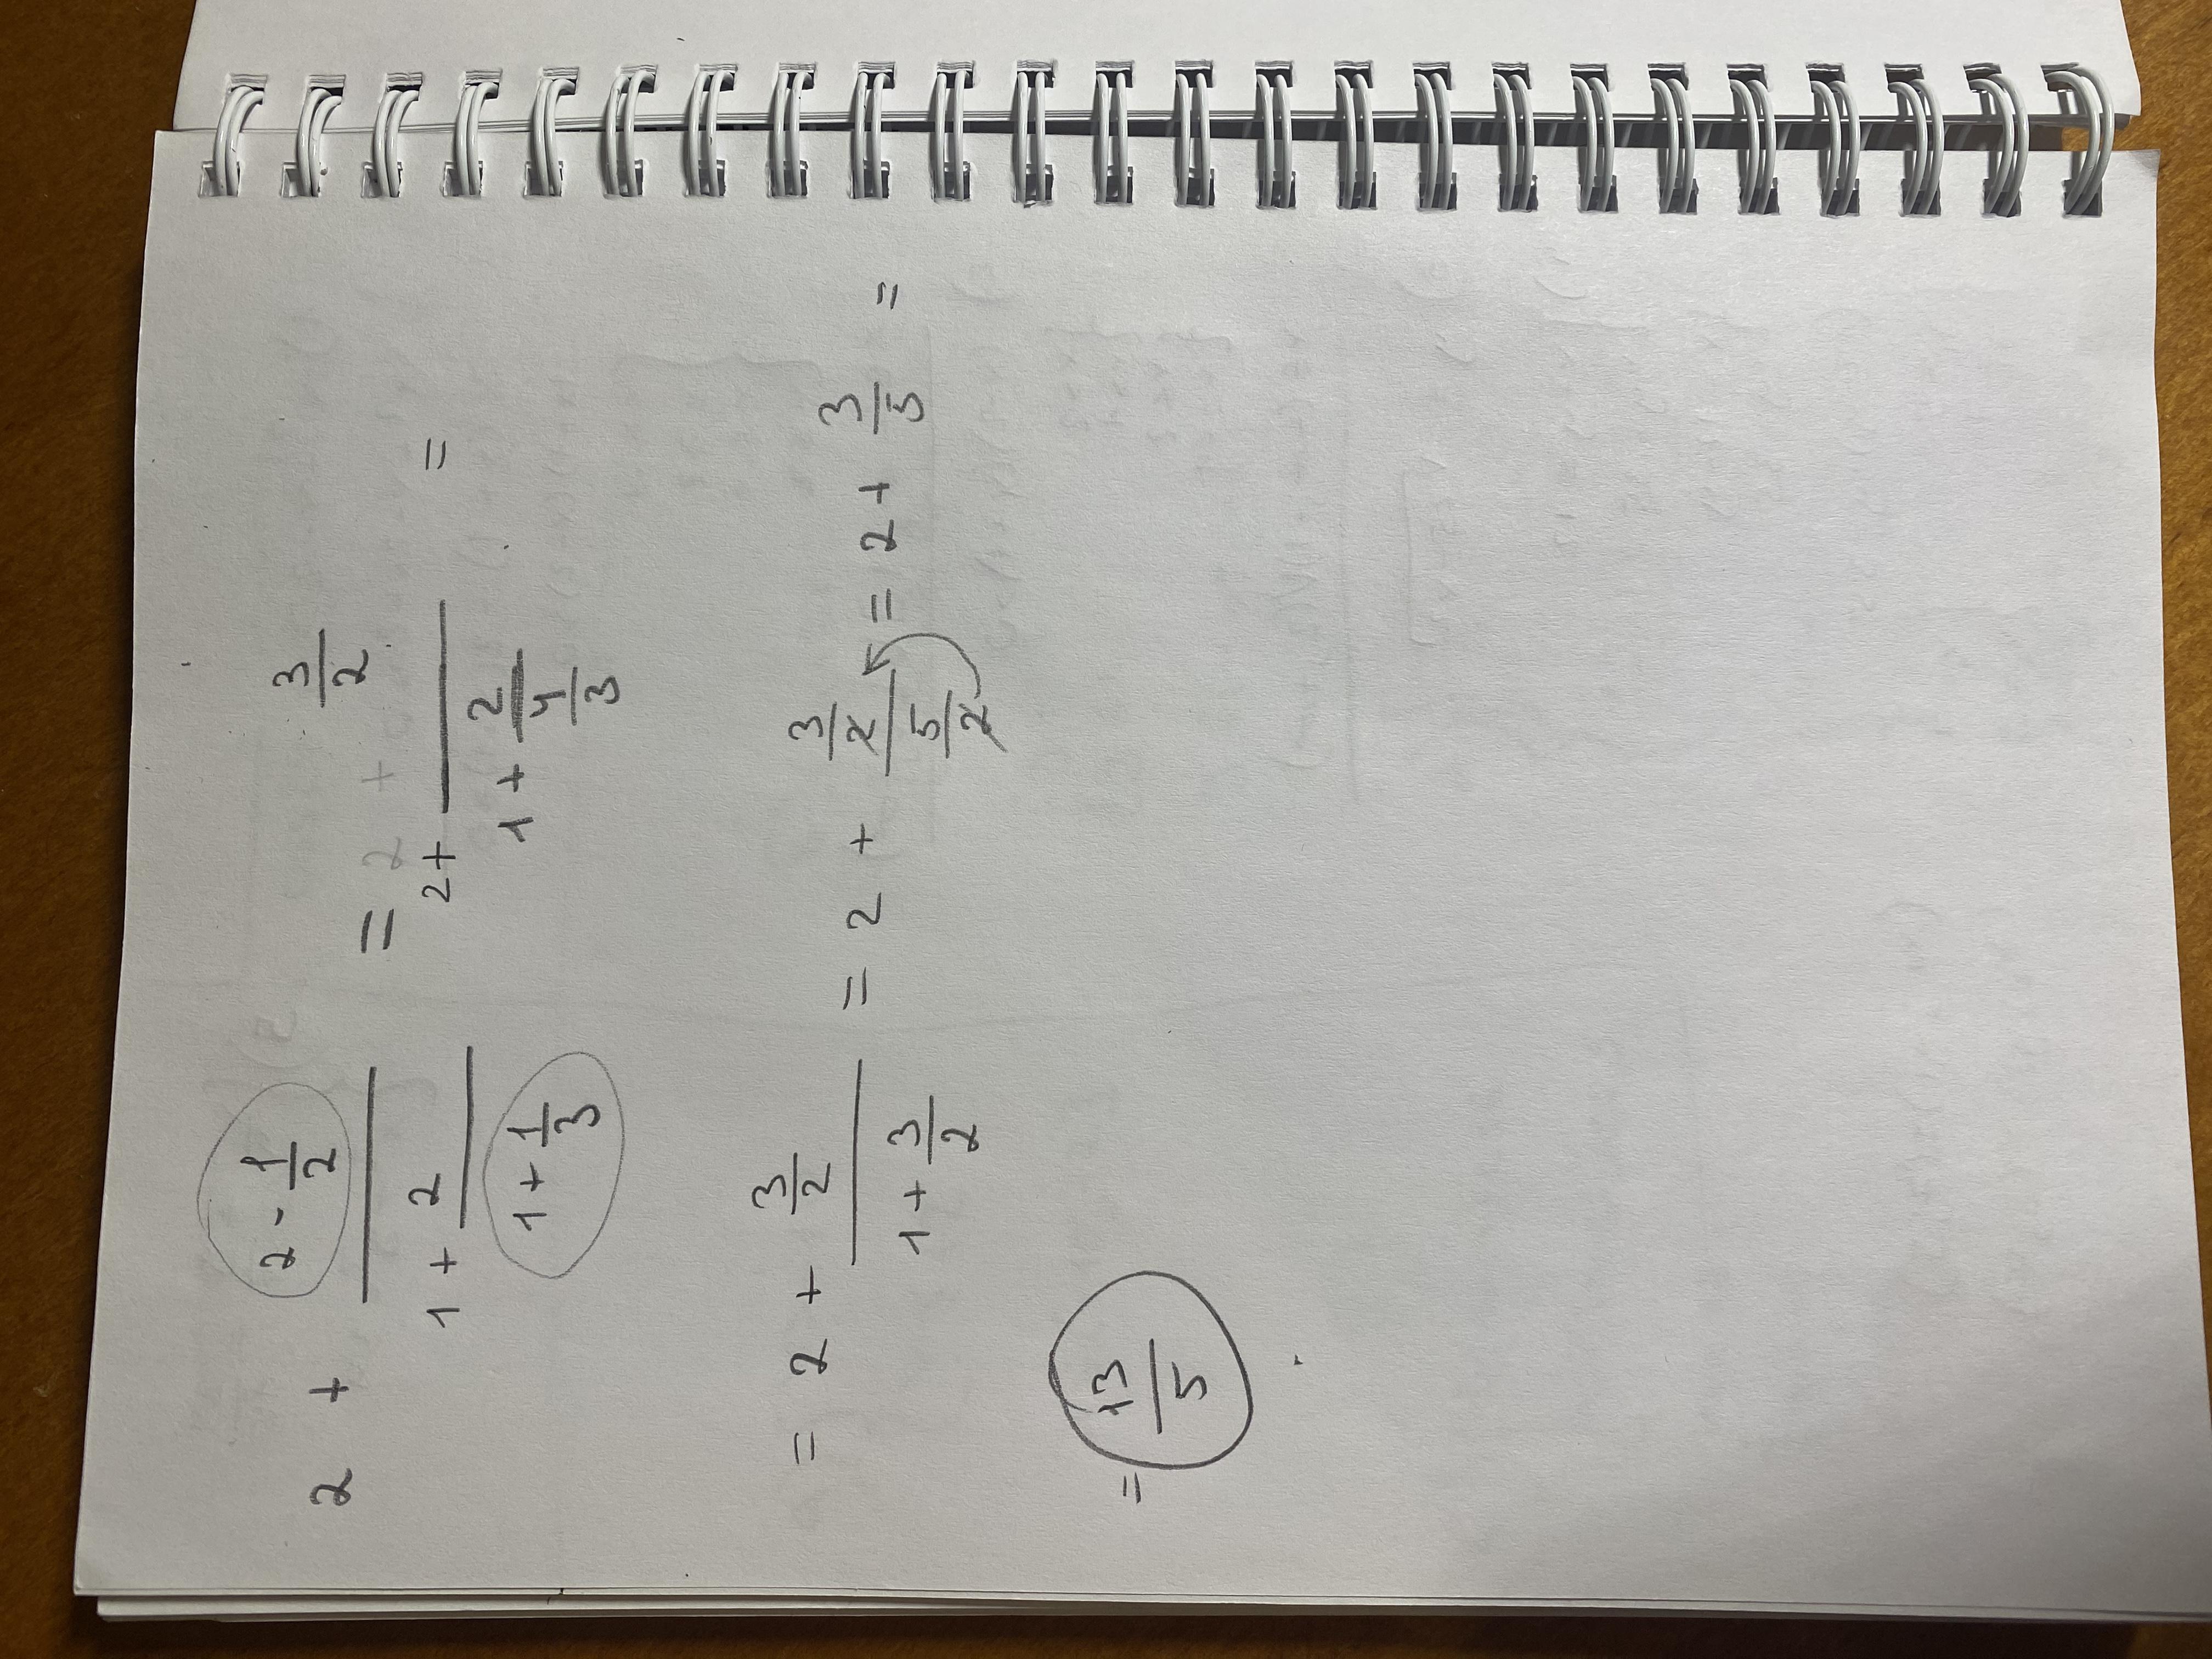 2 + (2 - 1/2)/(1 + 2/(1 + 1/3)) = 2 + (3/2)/(1 + 2/(4/3)) =
= 2 + (3/2)/(1 + 3/2) = 2 + (3/2)/(5/2) = 2 + 3/5 =
= 13/5